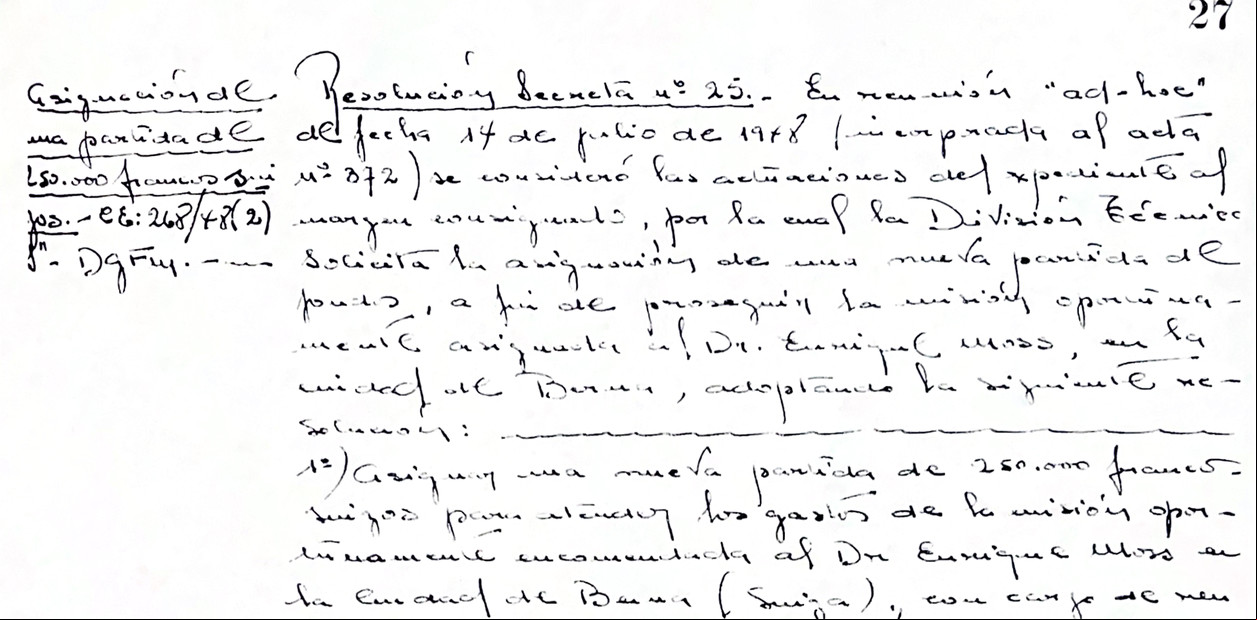 27
Asignación de
una partida de
250.000 francos sui
zos.- CE: 268/48(2)
DGFM. -.--
Resolución Secreta nº 25.- En reunión "ad-hoc"
de fecha 14 de julio de 1948 (incorprada al acta
nº 372) se consideró las actuaciones del expediente al
margen consignado, por la cual la División Técnica
solicita la asignación de una nueva partida de
fondos, a fin de proseguir la misión oportuna-
mente asignada al Dr. Enrique Moss, en la
ciudad de Berna, adoptando la siguiente re-
solución:
1º) Asignar una nueva partida de 250.000 francos
suizos para atender los gastos de la misión opor-
tunamente encomendada al Dr Enrique Moss en
la Ciudad de Berna (Suiza), con cargo de ren